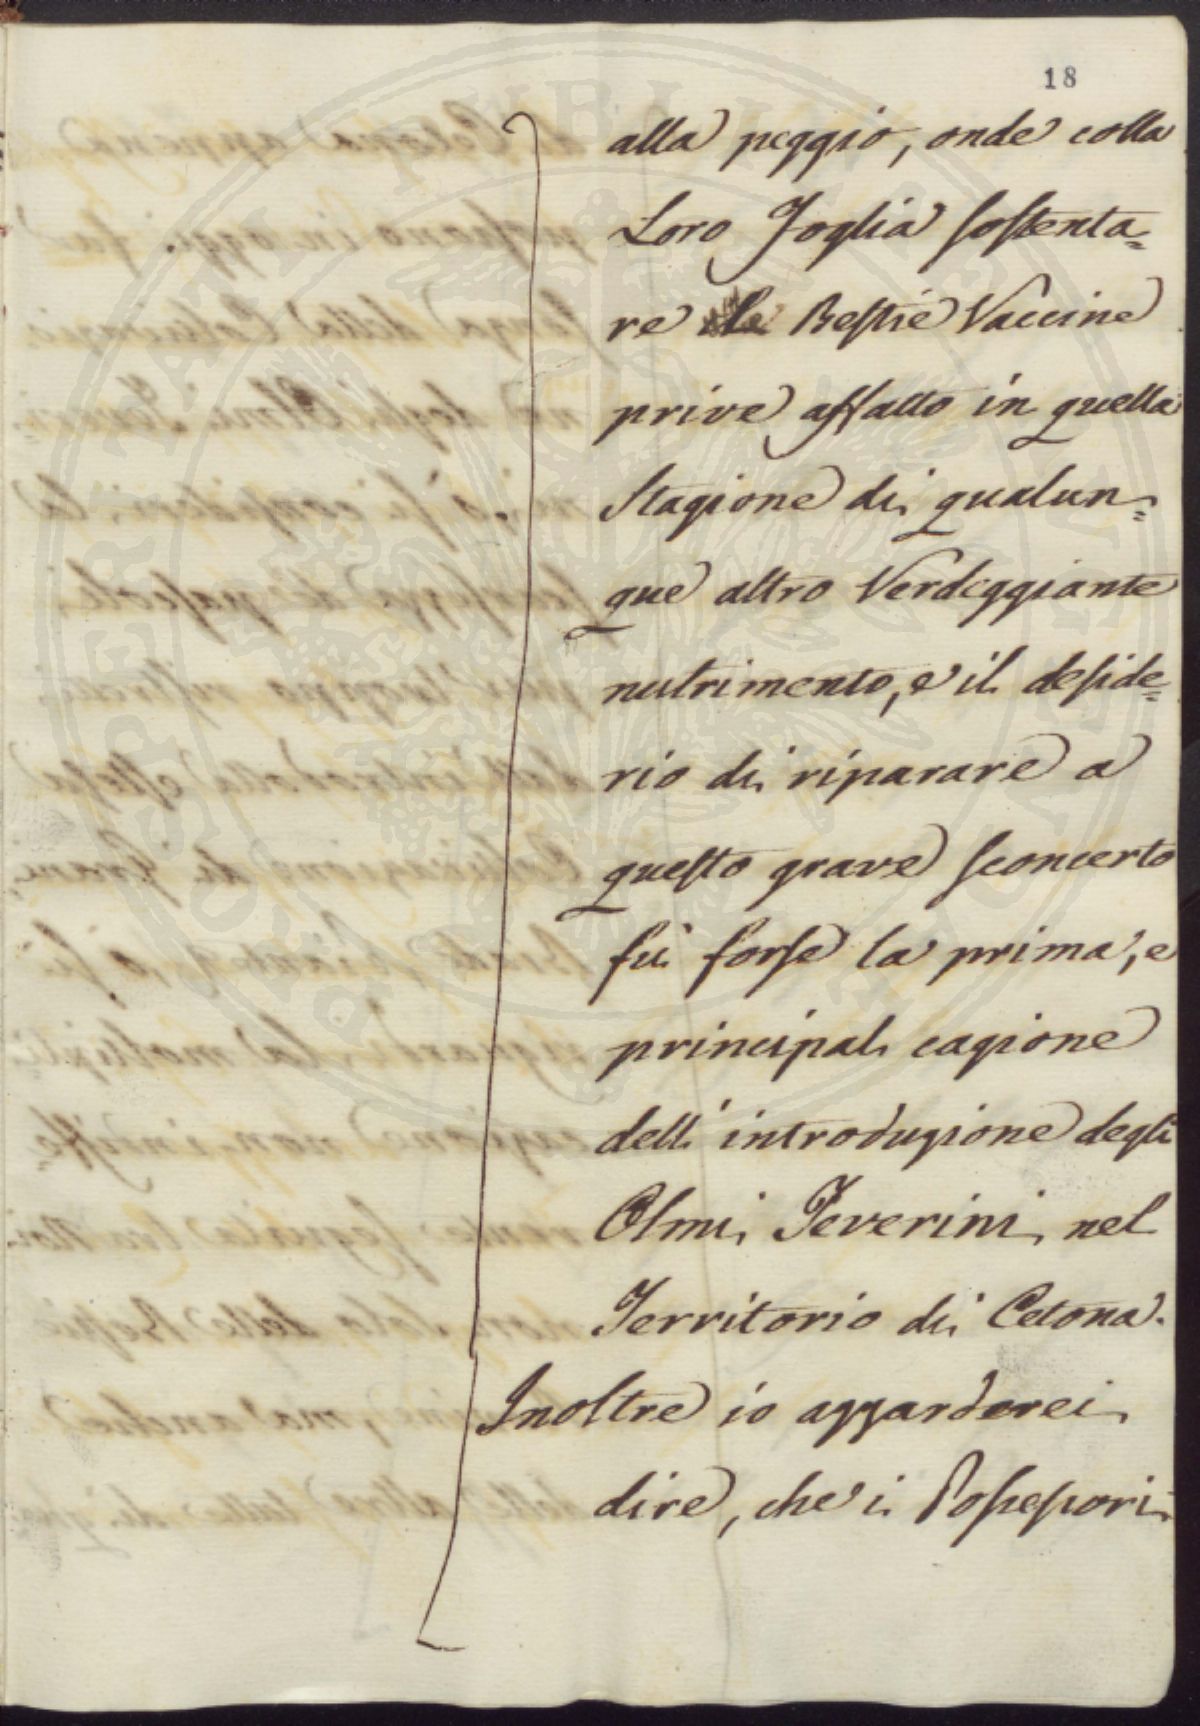 18
alla peggio, onde colla
Loro Foglia sostenta=
re le Bestie Vaccine
prive affatto in quella
Stagione di qualun=
que altro Verdeggiante
nutrimento, e il deside=
rio di riparare a
questo grave sconcerto
fù forse la prima, e
principal cagione
dell'introduzione degli
Olmi Teverini nel
Territorio di Cetona.
Inoltre io azzarderei
dire, che i Possessori